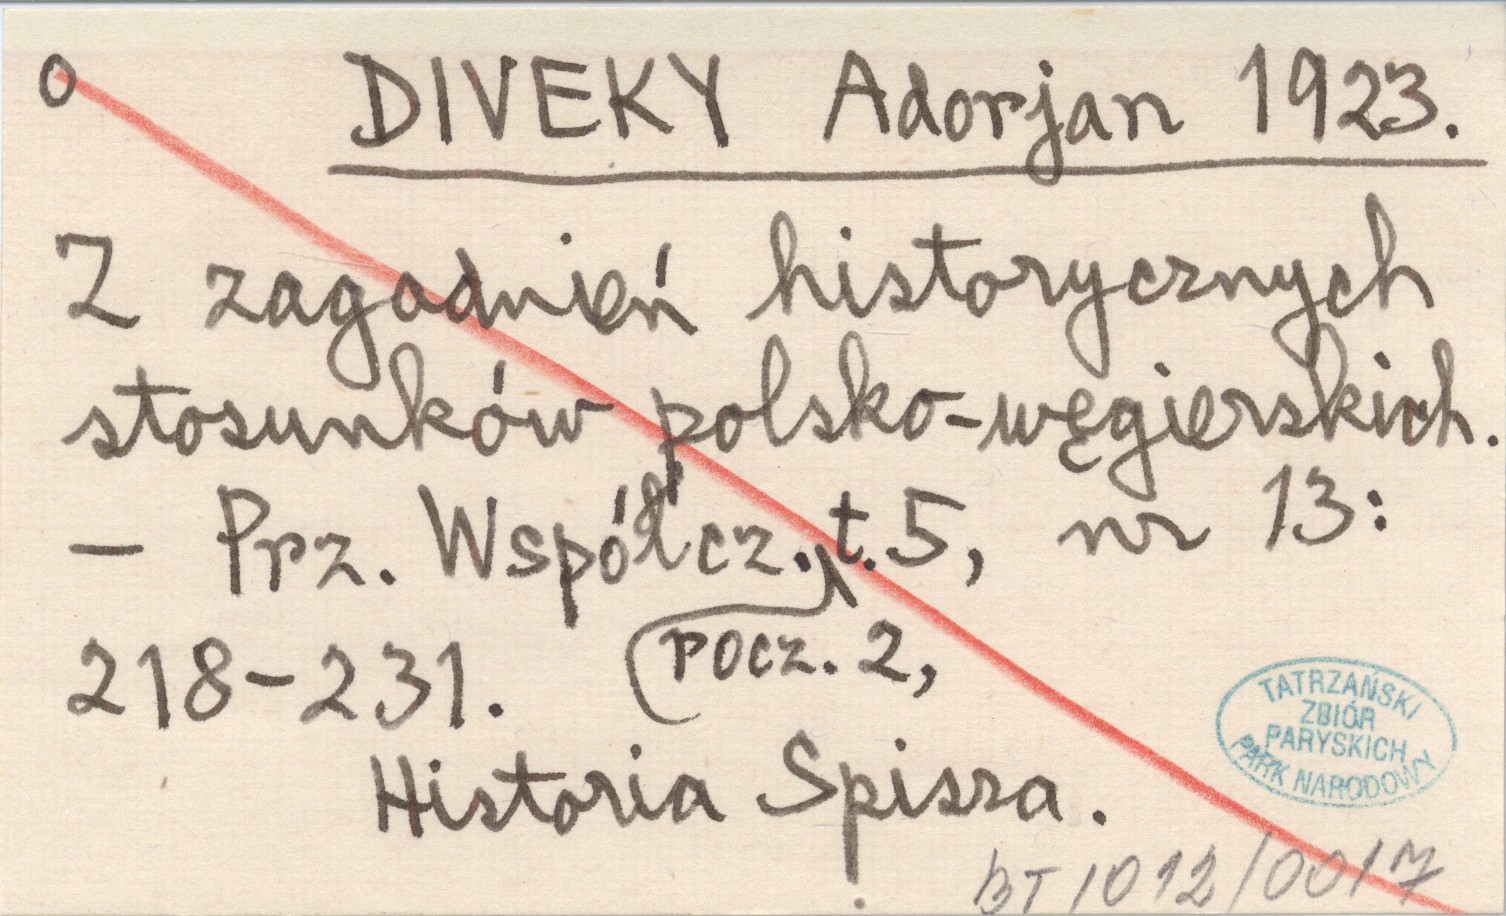 O DIVEKY Adorjan 1923.
Z zagadnień historycznych
stosunków polsko-węgierskich.
– Prz. Współcz. t.5, nr 13:
pocz. 2,
218–231.
Historia Spisza.
TATRZAŃSKI
ZBIÓR
PARYSKICH
PARK NARODOWY
BT 1012/0017